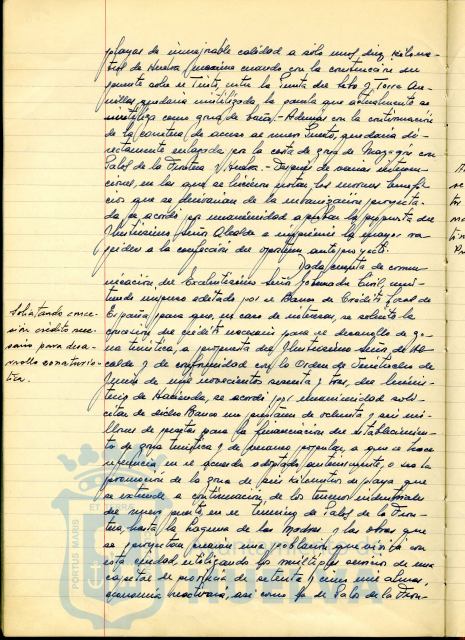 playas de inmejorable calidad a sólo unos diez kilóme-
tros de Huelva, máxime cuando con la construcción del
puente sobre el Tinto, entre la Punta del Sebo y Torre Are-
nillas quedaría inutilizada la punta que actualmente se
utiliza como zona de baño.- Además con la continuación
de la carretera de acceso al nuevo Puente, quedaría di-
rectamente enlazada por la costa la zona de Mazagón con
Palos de la Frontera y Huelva.- Después de varias interven-
ciones, en las que se hicieron notar los enormes benefi-
cios que se derivarían de la urbanización proyecta-
da, se acordó por unanimidad aprobar la propuesta del
Ilustrísimo Señor Alcalde e imprimir la mayor ra-
pidez a la confección del oportuno anteproyecto.
Dada cuenta de comu-
nicación del Excelentísimo Señor Gobernador Civil, remi-
tiendo impreso editado por el Banco de Crédito Local de
España, para que, en caso de interesar, se solicite la
operación de crédito necesaria para el desarrollo de zo-
na turística, a propuesta del Ilustrísimo Señor Al-
calde y de conformidad con la Orden de
de mil novecientos sesenta y tres, del Minis-
terio de Hacienda, se acordó por unanimidad soli-
citar de dicho Banco un préstamo de ochenta y seis mi-
llones de pesetas para la financiación del establecimien-
to de zona turística y de verano popular, a que se hace
referencia en el acuerdo adoptado anteriormente, o sea la
promoción de la zona de seis kilómetros de playa que
se extiende a continuación de los terrenos
del nuevo puerto, en el término de Palos de la Fron-
tera, hasta la Laguna de las Madres, y las obras que
se proyectan crearán una población que vivirá con
esta ciudad, utilizando los múltiples servicios de una
capital de provincia de setenta y cinco mil almas,
economía reactivará, así como la de Palos de la Fron-
Solicitando conce-
sión crédito nece-
sario para desa-
rrollo zona turís-
tica.
PORTUS MARIS
ET TERRAE
Ayuntamiento de
HUELVA